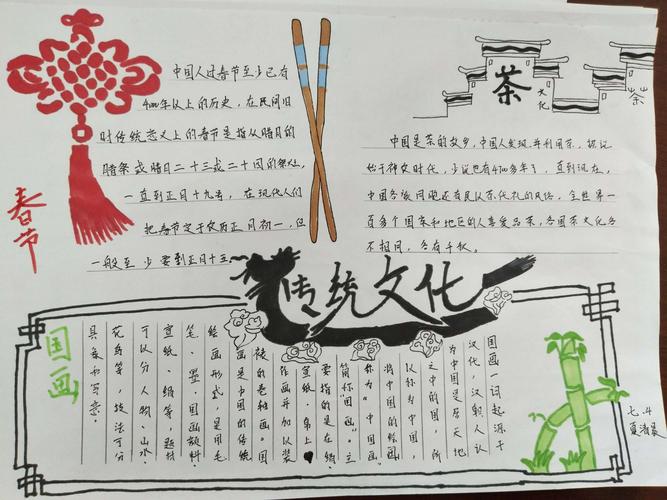 春节
中国人过春节至少已有
4000年以上的历史，在民间旧
时传统意义上的春节是指从腊月的
腊祭或腊月二十三或二十四的祭灶，
一直到正月十九，在现代人们
把春节定于农历正月初一，但
一般至少要到正月十五
茶
文化
茶
中国是茶的故乡，中国人发现并利用茶，据说
始于神农时代，少说也有4700多年了，直到现在，
中国各族同胞还有民以茶代礼的风俗，全世界一
百多个国家和地区的人喜爱品茶，各国茶文化各
不相同，各有千秋。
传统文化
国画
国画一词起源于
汉代，汉朝人认
为中国是居天地
之中的国，所
以称为中国，
将中国的绘画
称为"中国画"
简称"国画"。主
要指的是在绢、
宣纸、帛上
作画并加以装
裱的卷轴画。国
画是中国的传统
绘画形式，是用毛
笔、墨、国画颜料
宣纸、绢等，题材
可以分人物、山水、
花鸟等，技法可分
具象和写意。
七.4